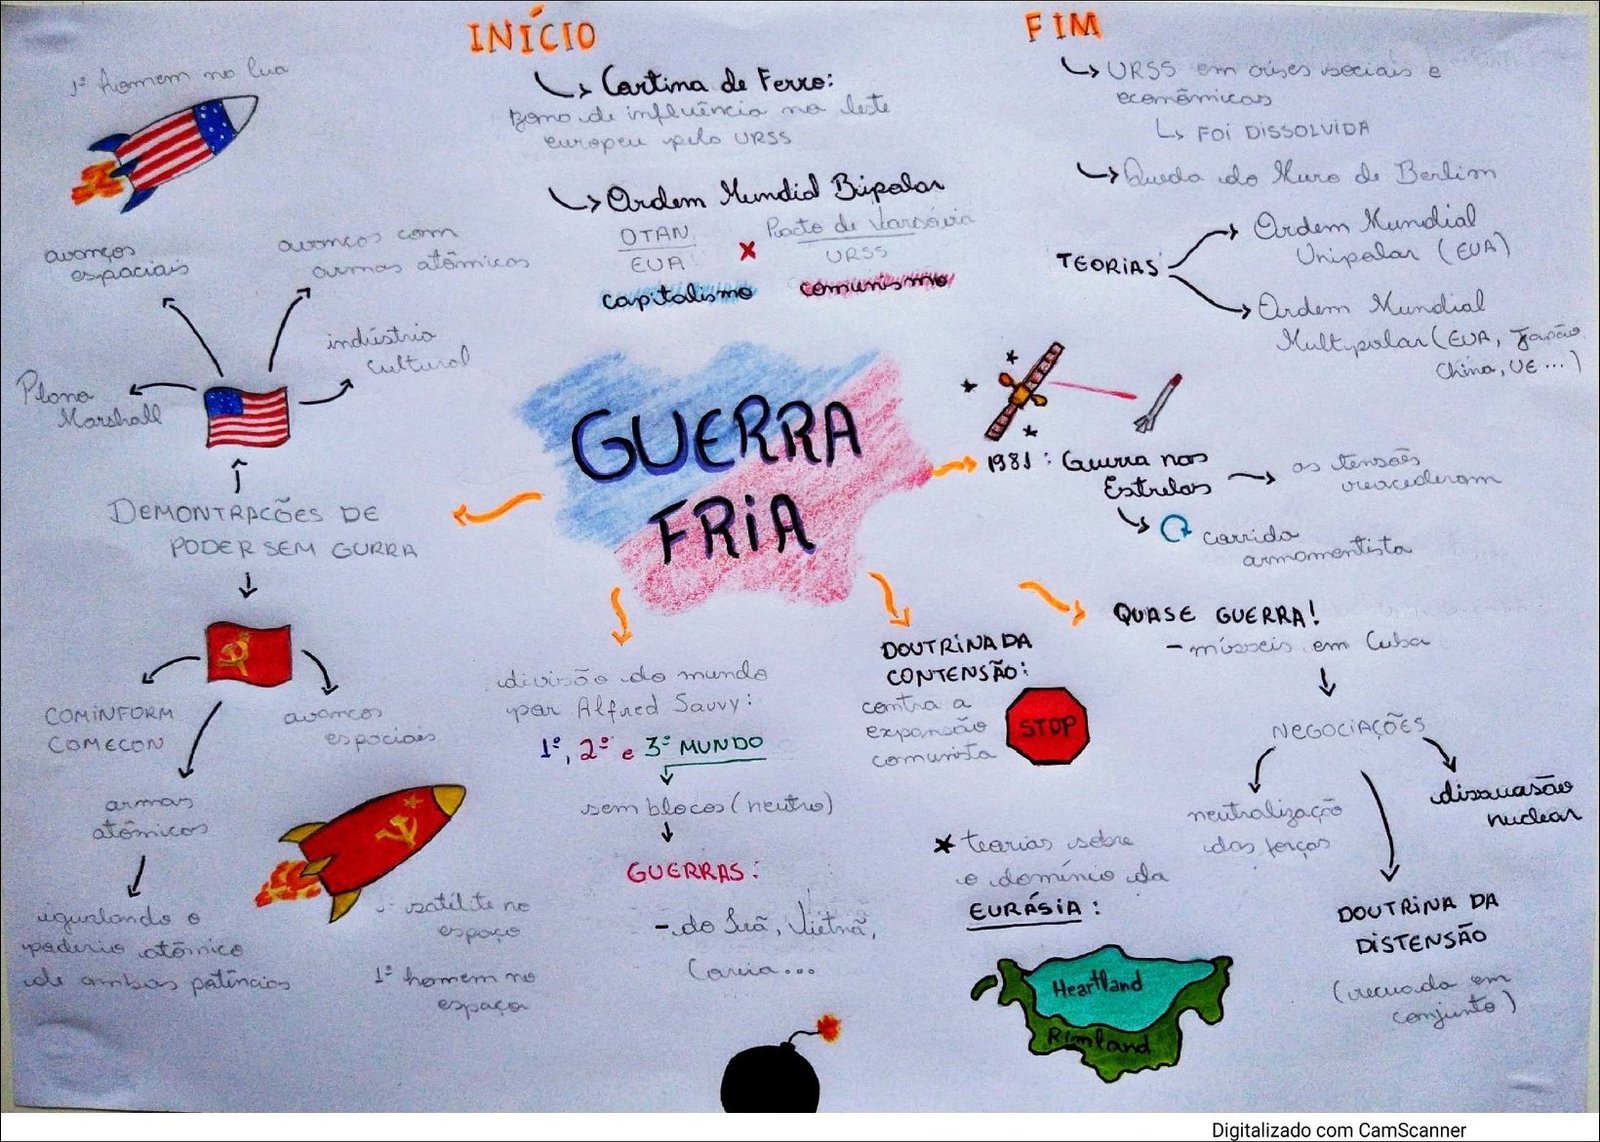 INÍCIO
Cortina de Ferro:
zona de influência no leste
europeu pela URSS
Ordem Mundial Bipolar
OTAN
EUA
X
Pacto de Varsóvia
URSS
capitalismo
comunismo
FIM
URSS em crises sociais e
econômicas
FOI DISSOLVIDA
Queda do Muro de Berlim
TEORIAS
Ordem Mundial
Unipolar (EUA)
Ordem Mundial
Multipolar (EUA, Japão,
China, UE ...)
1º homem na lua
avanços
espaciais
avanços com
armas atômicas
indústria
cultural
Plano
Marshall
DEMONTRAÇÕES DE
PODER SEM GURRA
COMINFORM
COMECON
avanços
espaciais
armas
atômicas
igualando o
poderio atômico
de ambas potências
1º satélite no
espaço
1º homem no
espaço
GUERRA
FRIA
divisão do mundo
por Alfred Sauvy:
1º, 2º e 3º MUNDO
sem blocos (neutro)
GUERRAS:
- do Irã, Vietnã,
Coreia...
DOUTRINA DA
CONTENSÃO:
contra a
expansão
comunista
STOP
* teorias sobre
o domínio da
EURÁSIA:
Heartland
Rimland
1981: Guerra nas
Estrelas
as tensões
reacederam
corrida
armamentista
QUASE GUERRA!
- mísseis em Cuba
NEGOCIAÇÕES
neutralização
das forças
dissuasão
nuclear
DOUTRINA DA
DISTENSÃO
(recuada em
conjunto)
Digitalizado com CamScanner